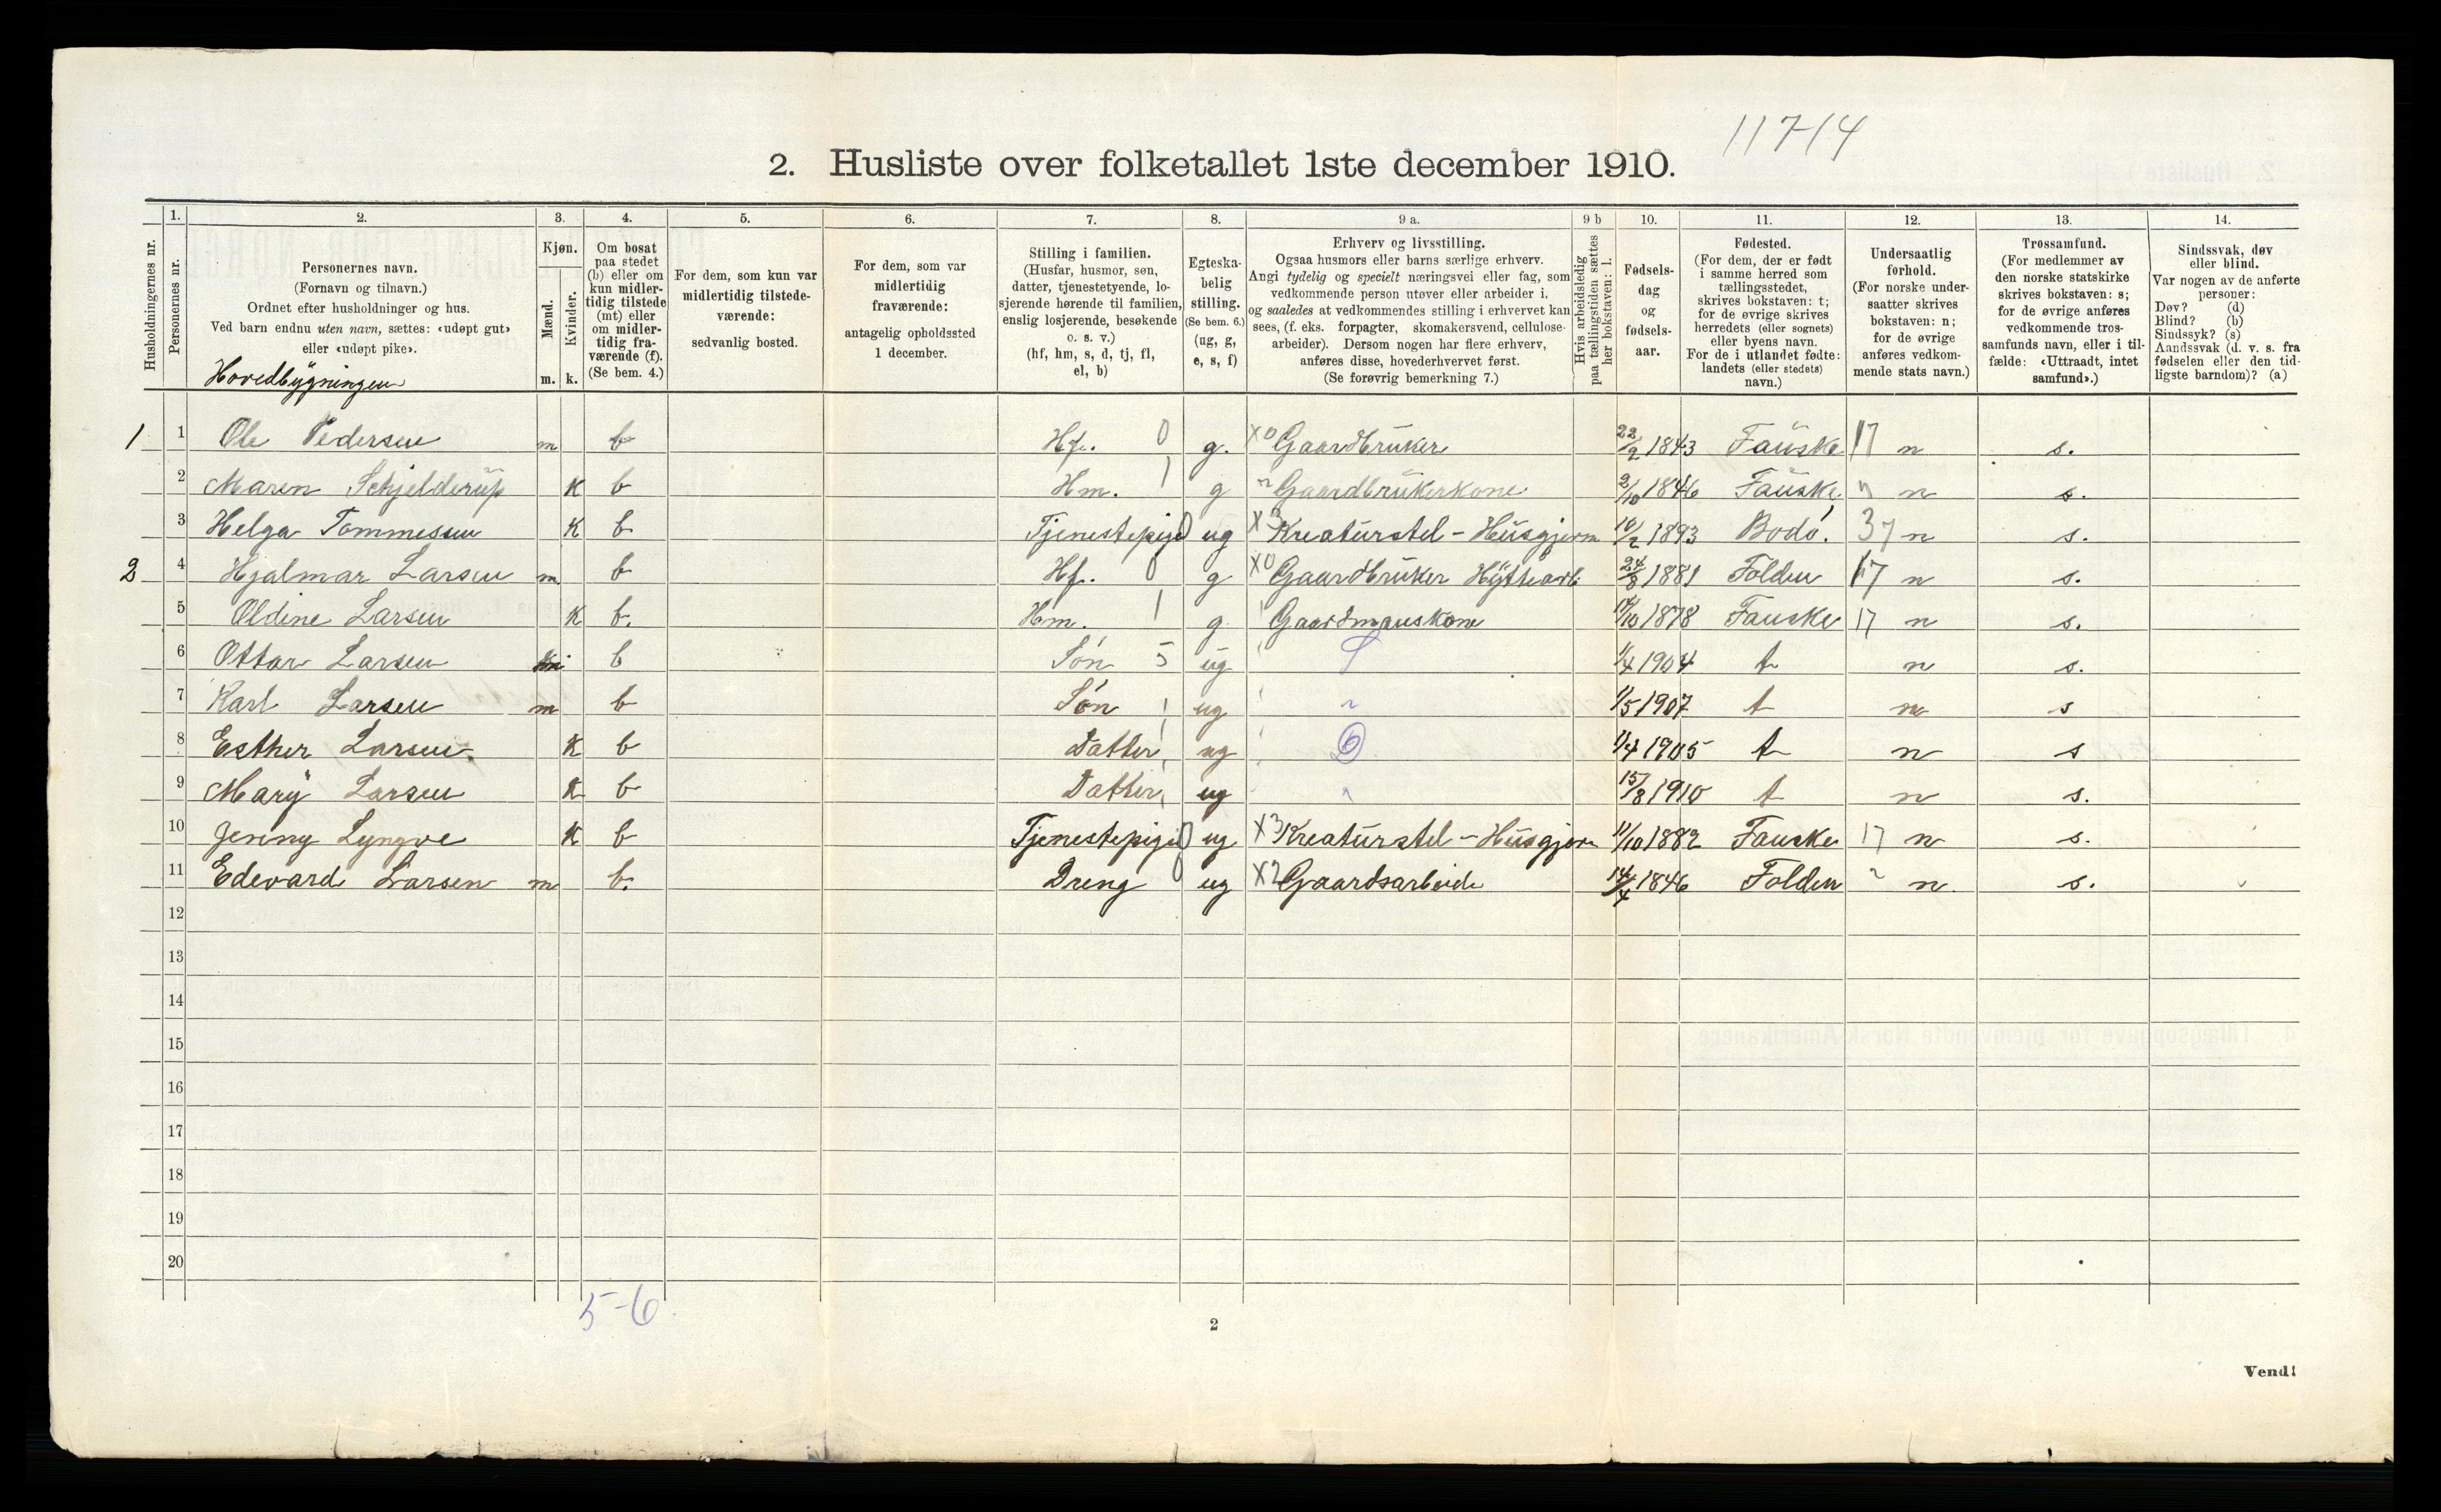 11714
2. Husliste over folketallet 1ste december 1910.
1. 2. 3. 4. 5. 6. 7. 8. 9 a. 9 b 10. 11. 12. 13. 14.
Husholdningernes nr.
Personernes nr.
Personernes navn.
(Fornavn og tilnavn.)
Ordnet efter husholdninger og hus.
Ved barn endnu uten navn, sættes: «udøpt gut»
eller «udøpt pike».
Hovedbygningen
Kjøn.
Mænd.
Kvinder.
m. k.
Om bosat
paa stedet
(b) eller om
kun midler-
tidig tilstede
(mt) eller
om midler-
tidig fra-
værende (f).
(Se bem. 4.)
For dem, som kun var
midlertidig tilstede-
værende:
sedvanlig bosted.
For dem, som var
midlertidig
fraværende:
antagelig opholdssted
1 december.
Stilling i familien.
(Husfar, husmor, søn,
datter, tjenestetyende, lo-
sjerende hørende til familien,
enslig losjerende, besøkende
o. s. v.)
(hf, hm, s, d, tj, fl,
el, b)
Egteska-
belig
stilling.
(Se bem. 6.)
(ug, g,
e, s, f)
Erhverv og livsstilling.
Ogsaa husmors eller barns særlige erhverv.
Angi tydelig og specielt næringsvei eller fag, som
vedkommende person utøver eller arbeider i,
og saaledes at vedkommendes stilling i erhvervet kan
sees, (f. eks. forpagter, skomakersvend, cellulose-
arbeider). Dersom nogen har flere erhverv,
anføres disse, hovederhvervet først.
(Se forøvrig bemerkning 7.)
Hvis arbeidsledig
paa tællingstiden sættes
her bokstaven: l.
Fødsels-
dag
og
fødsels-
aar.
Fødested.
(For dem, der er født
i samme herred som
tællingsstedet,
skrives bokstaven: t;
for de øvrige skrives
herredets (eller sognets)
eller byens navn.
For de i utlandet fødte:
landets (eller stedets)
navn.)
Undersaatlig
forhold.
(For norske under-
saatter skrives
bokstaven: n;
for de øvrige
anføres vedkom-
mende stats navn.)
Trossamfund.
(For medlemmer av
den norske statskirke
skrives bokstaven: s;
for de øvrige anføres
vedkommende tros-
samfunds navn, eller i til-
fælde: «Uttraadt, intet
samfund».)
Sindssvak, døv
eller blind.
Var nogen av de anførte
personer:
Døv? (d)
Blind? (b)
Sindssyk? (s)
Aandssvak (d. v. s. fra
fødselen eller den tid-
ligste barndom)? (a)
1 1 Ole Pedersen m b Hf. 0 g. X0 Gaardbruker 22/2 1843 Fauske 17 n s.
2 Maren Schjelderup K b Hm. 1 g Gaardbrukerkone 2/10 1846 Fauske n s.
3 Helga Tommesen K b Tjenestepige ug X3 Kreaturstel - Husgjern 10/2 1893 Bodö. 37 n s.
2 4 Hjalmar Larsen m b Hf. 0 g X0 Gaardbruker Hyttearb. 24/8 1881 Folden 17 n s.
5 Oldine Larsen K b. Hm. 1 g Gaardmanskone 14/10 1878 Fauske 17 n s.
6 Ottar Larsen m b Sön 5 ug S 1/4 1904 t n s.
7 Karl Larsen m b Sön 1 ug 1/5 1907 t n s
8 Esther Larsen K b Datter ug D 1/4 1905 t n s
9 Mary Larsen K b Datter ug 15/8 1910 t n s.
10 Jenny Lyngve K b Tjenestepige ug X3 Kreaturstel - Husgjern 11/10 1882 Fauske 17 n s.
11 Edevard Larsen m b. Dreng ug X2 Gaardsarbeide 14/4 1846 Folden n s.
12
13
14
15
16
17
18
19
20
5-6
2
Vend!